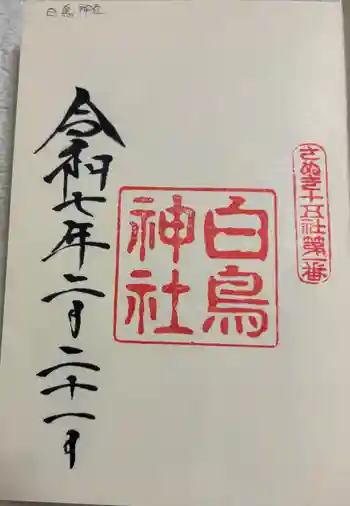 白鳥神社
さぬき十五社第一番
白鳥
神社
令和七年二月二十一日